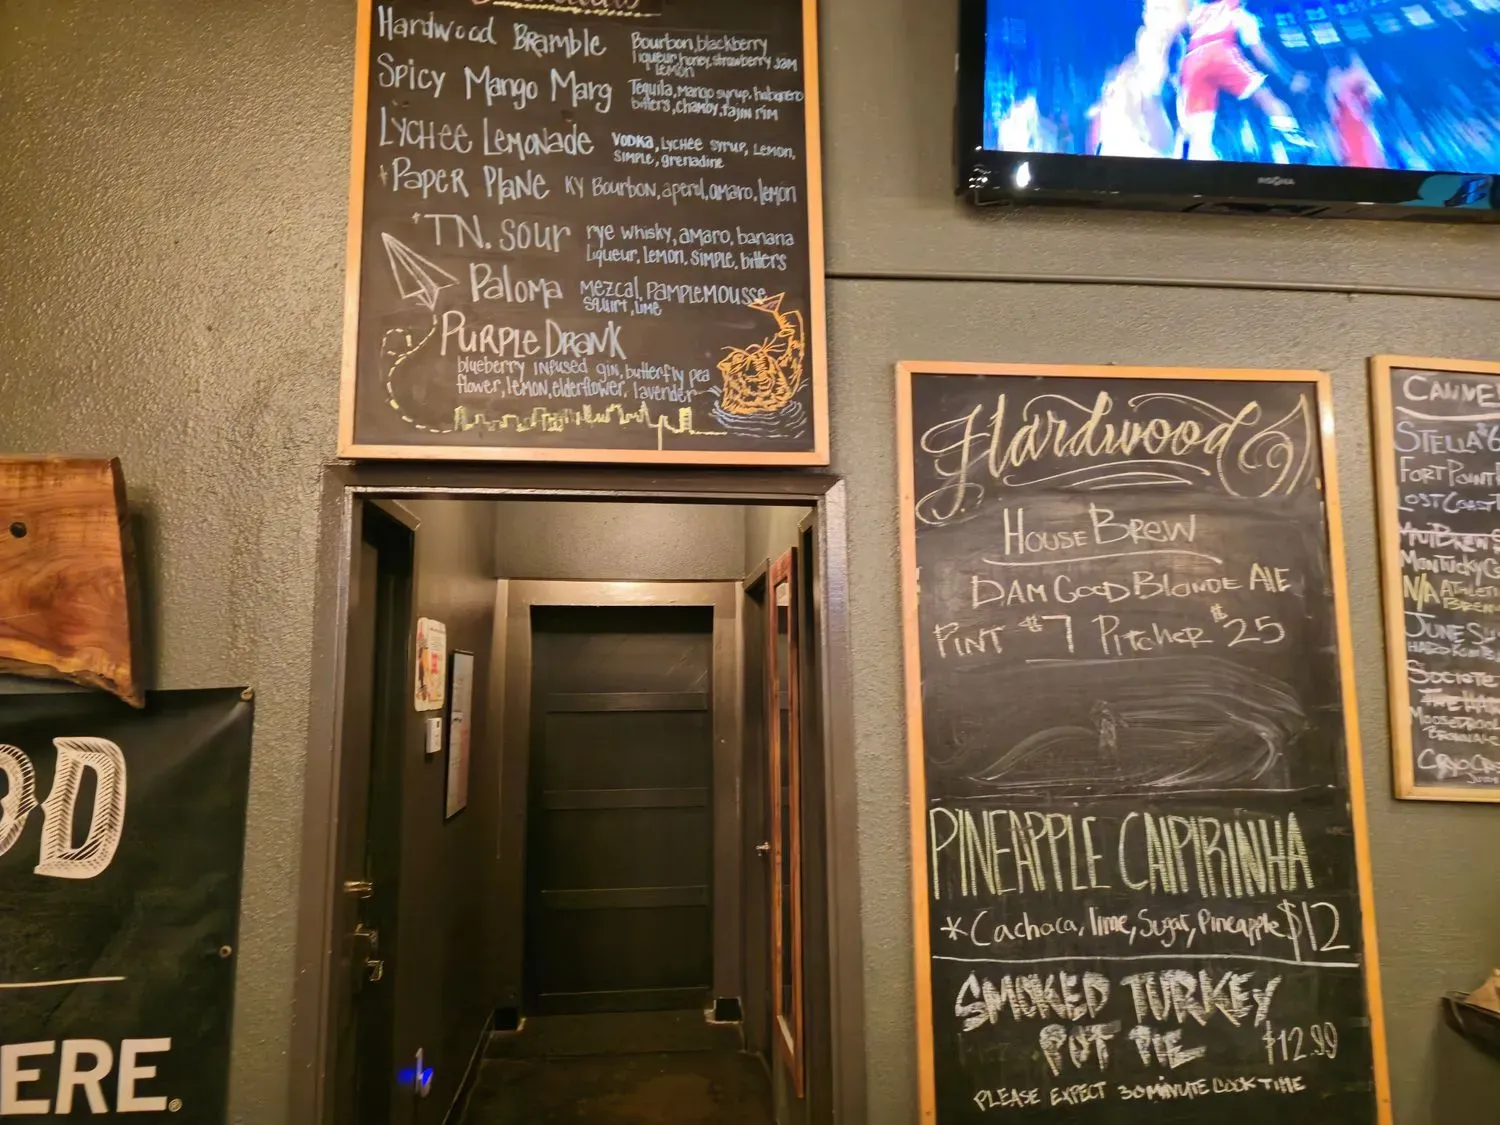 Hardwood Bramble Bourbon, blackberry
liqueur, honey, strawberry jam
lemon
Spicy Mango Marg Tequila, Mango syrup, habanero
bitters, chamoy, tajin rim
LYCHEE LEMONADE VODKA, LYCHEE SYRUP, LEMON,
SIMPLE, grenadine
PAPER PLANE KY Bourbon, aperol, amaro, lemon
TN. SOUR rye whisky, amaro, banana
Liqueur, LEMON, SIMPLE, bitters
Paloma MEZCAL, PAMPLEMOUSSE
SQUIRT, LIME
PURPLE DRANK
blueberry INFUSED gin, butterfly pea
flower, lemon, elderflower, lavender
Hardwood
HOUSE BREW
DAM GOOD BLONDE ALE
PINT $7 PITCHER $25
PINEAPPLE CAIPIRINHA
*Cachaca, lime, Sugar, Pineapple $12
SMOKED TURKEY
POT PIE $12.99
PLEASE EXPECT 30 MINUTE COOK TIME
STELLA $6
FORT POINT
LOST COAST
SOCIETE
OD
ERE.
INSIGNIA